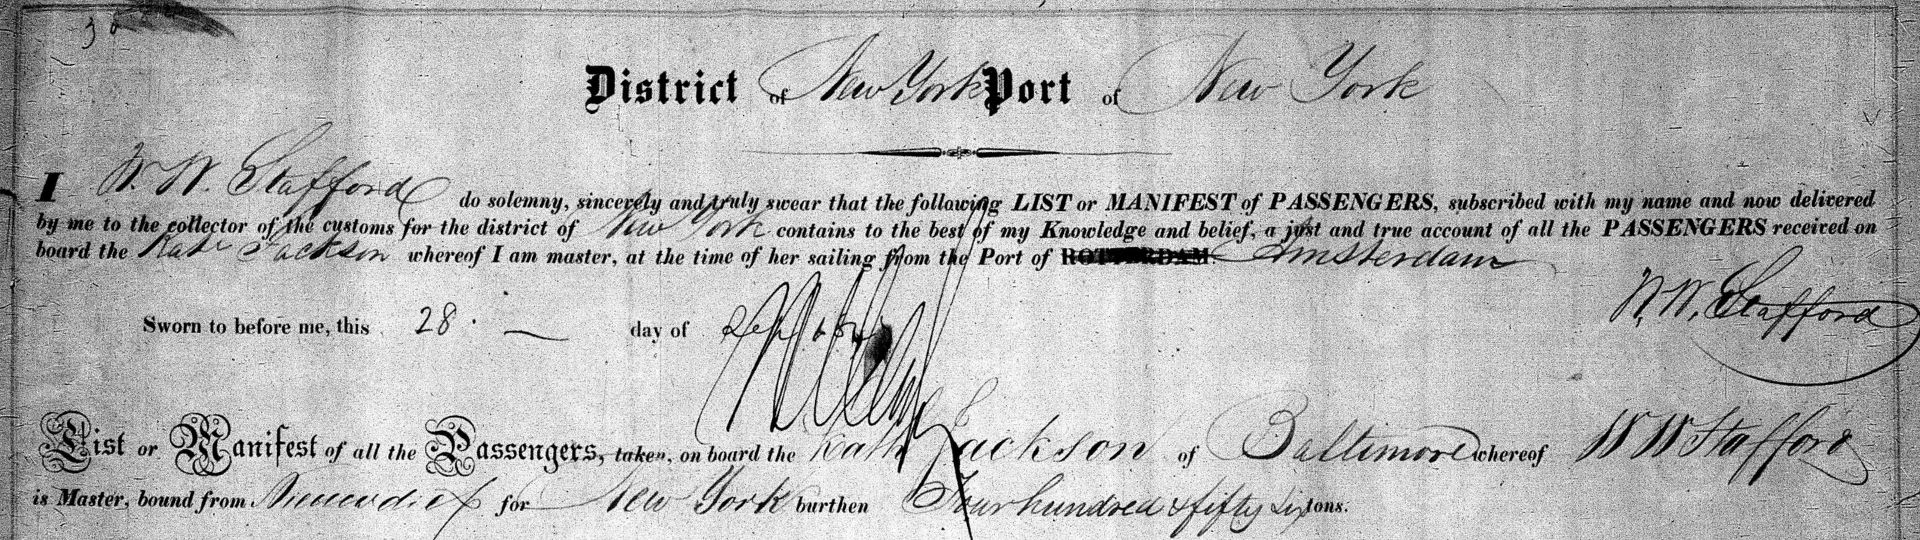 30
District of New York Port of New York
I W. W. Stafford do solemny, sincerely and truly swear that the following LIST or MANIFEST of PASSENGERS, subscribed with my name and now delivered
by me to the collector of the customs for the district of New York contains to the best of my Knowledge and belief, a just and true account of all the PASSENGERS received on
board the Kate Jackson whereof I am master, at the time of her sailing from the Port of ROTTERDAM. Amsterdam
W. W. Stafford
Sworn to before me, this 28 day of
List or Manifest of all the Passengers, taken, on board the Kath Jackson of Baltimore whereof W W Stafford
is Master, bound from for New York burthen Four hundred & fifty Six tons.